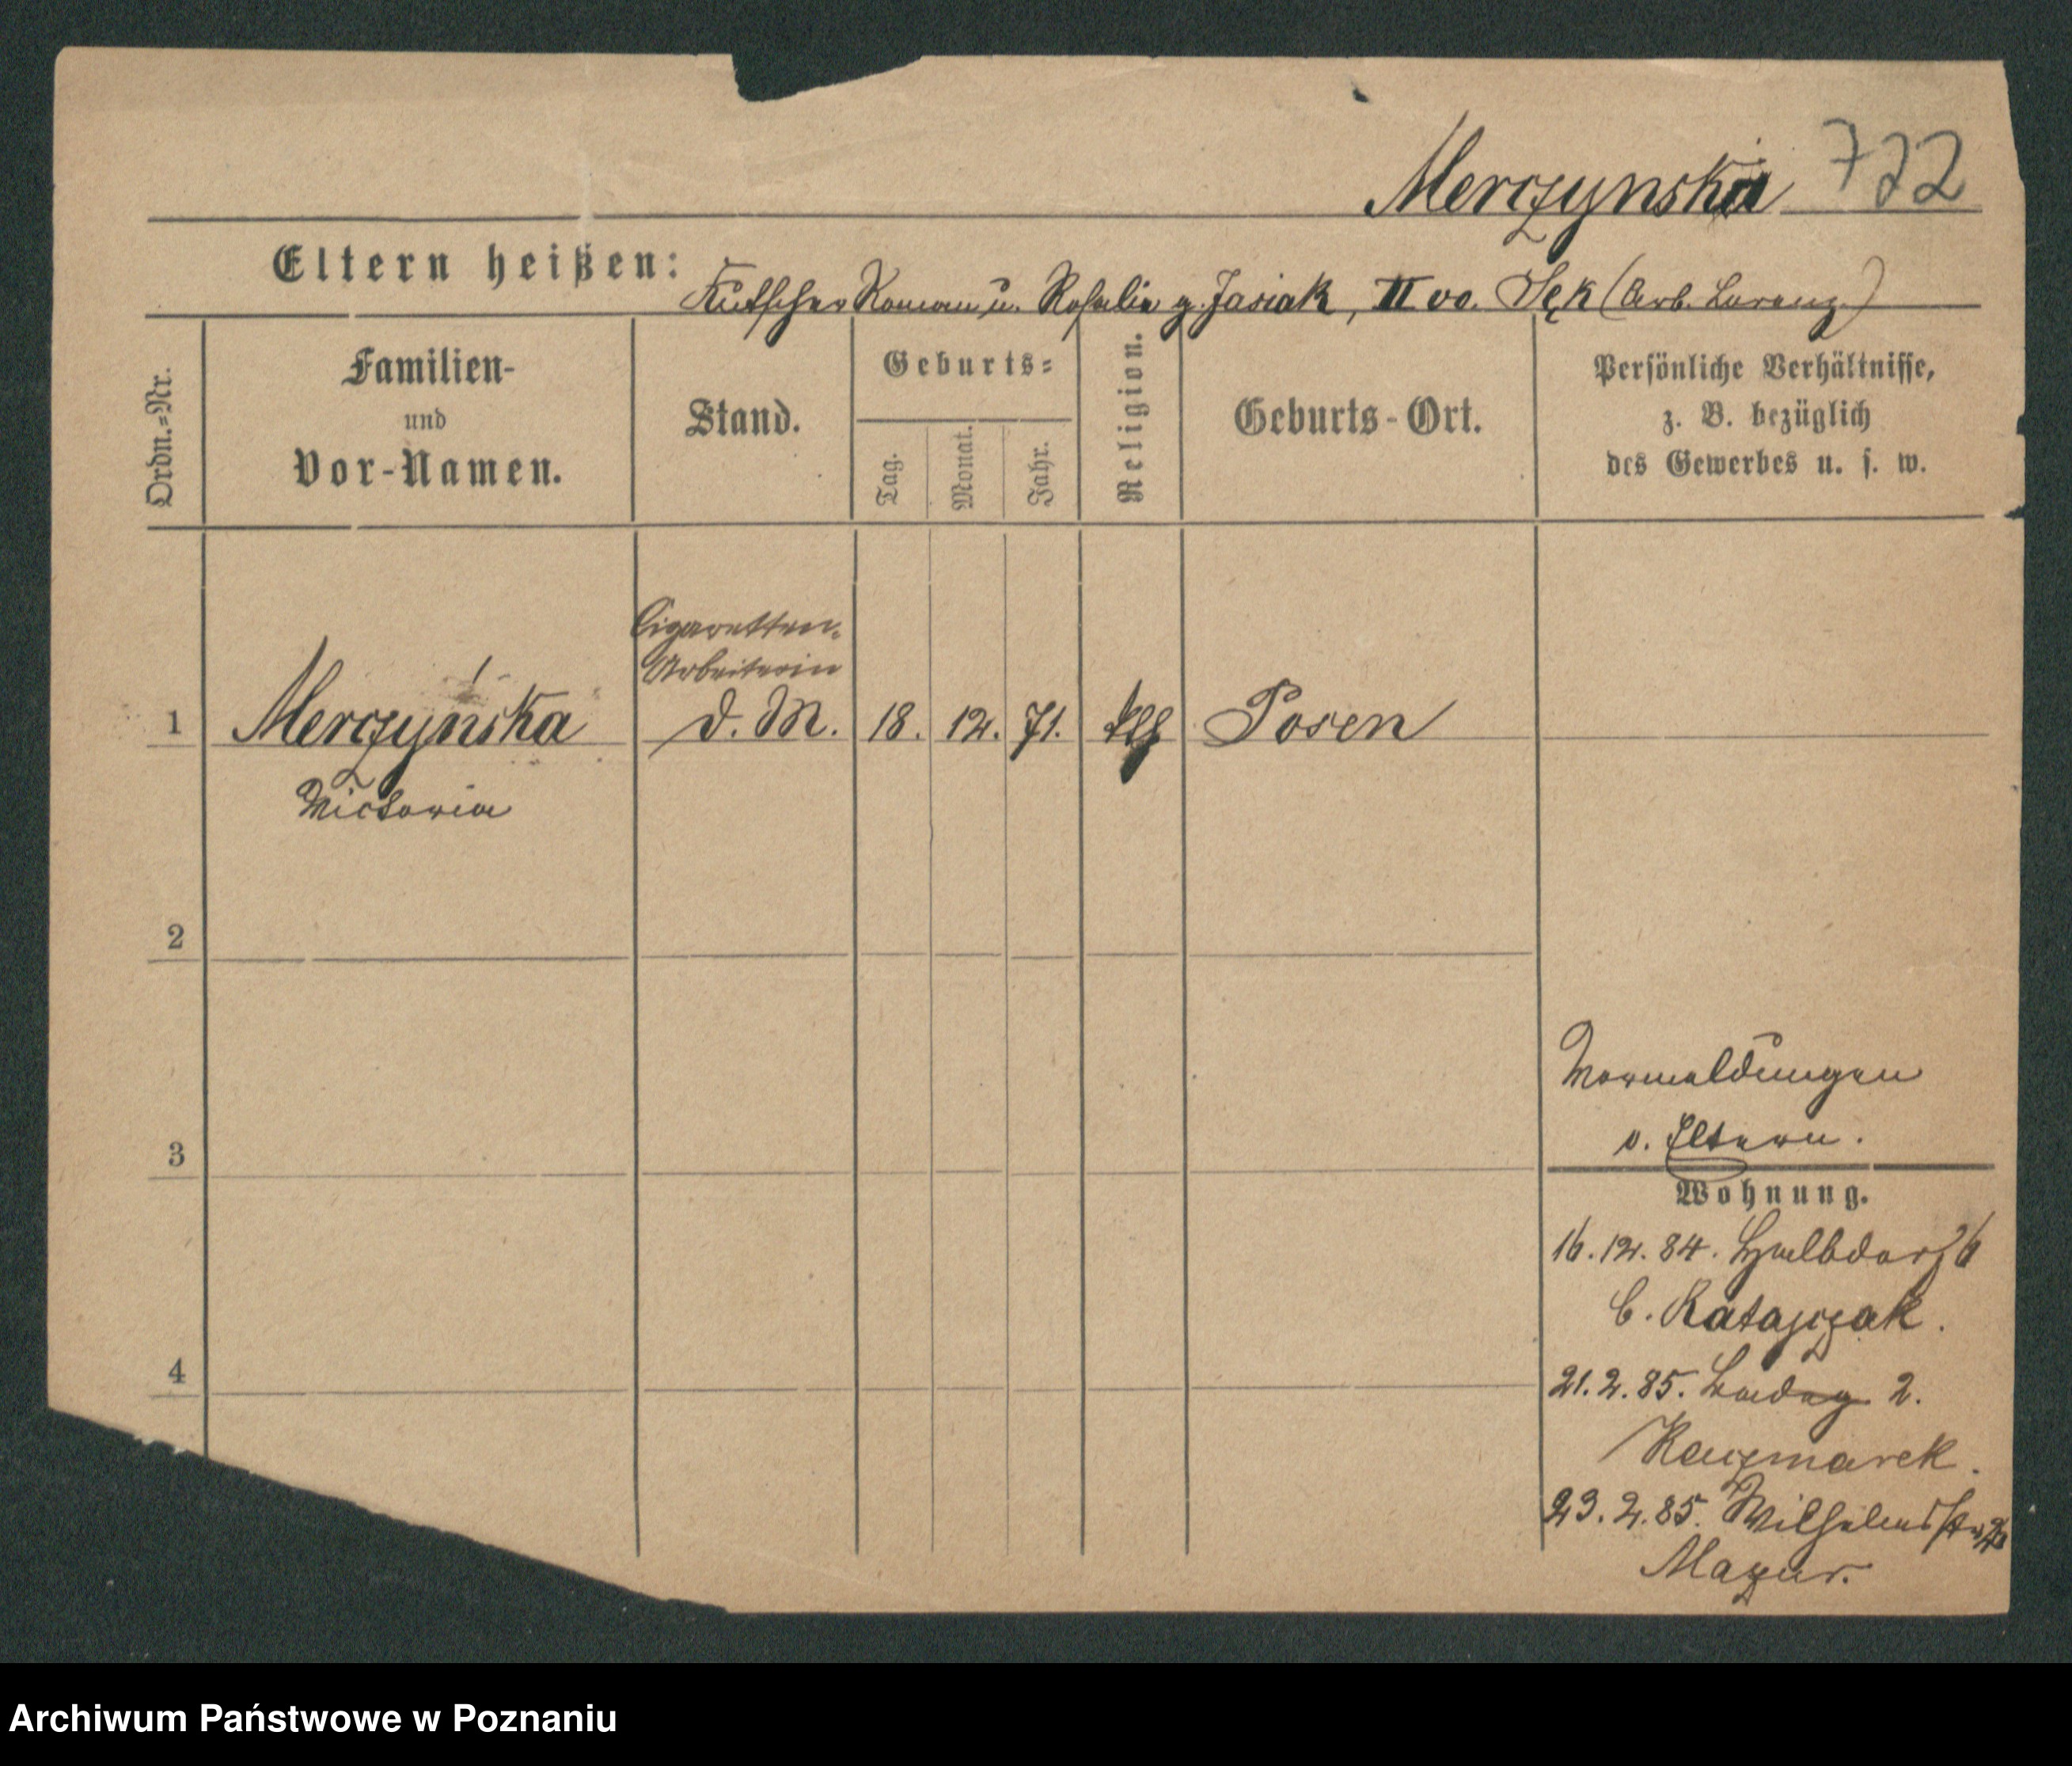 Merczynska 722
Eltern heißen: Kutscher Roman u. Rosalie g. Jasiak, II vo. Sęk (Arb. Lorenz.)
Ordn.=Nr.
Familien-
und
Vor-Namen.
Stand.
Geburts=
Tag.
Monat.
Jahr.
Religion.
Geburts-Ort.
Persönliche Verhältnisse,
z. B. bezüglich
des Gewerbes u. s. w.
Cigaretten-
Arbeiterin
1 Merczyńska d. M. 18. 12. 71. Posen
Victoria
2
Vormeldungen
v. Eltern.
3
Wohnung.
16. 12. 84. Halbdorf 6
b. Ratajczak.
4
21. 2. 85. 2.
Kaczmarek.
23. 2. 85. Wilhelmstr.
Mazur.
Archiwum Państwowe w Poznaniu